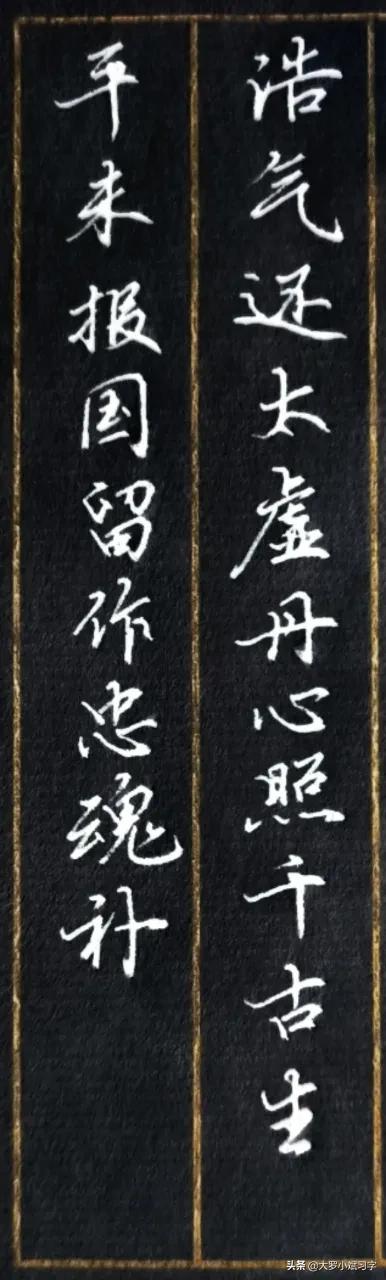 浩气还太虚丹心照千古生
平未报国留作忠魂补
头条@大罗小斌习字